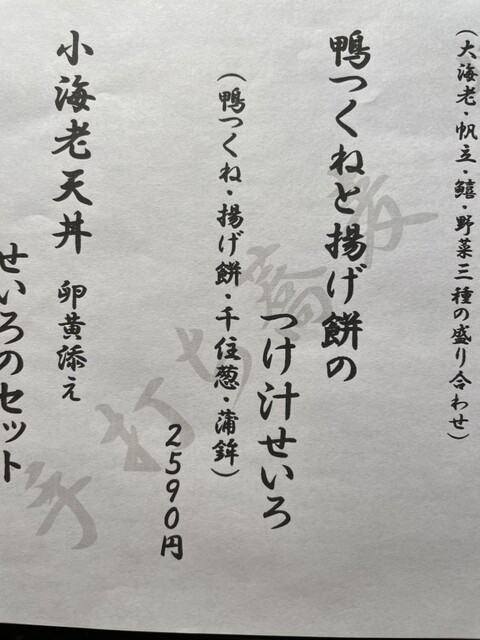 (大海老・帆立・鱚・野菜三種の盛り合わせ)
鴨つくねと揚げ餅の
つけ汁せいろ
(鴨つくね・揚げ餅・千住葱・蒲鉾)
2590円
小海老天丼 卵黄添え
せいろのセット
手打ち蕎麦